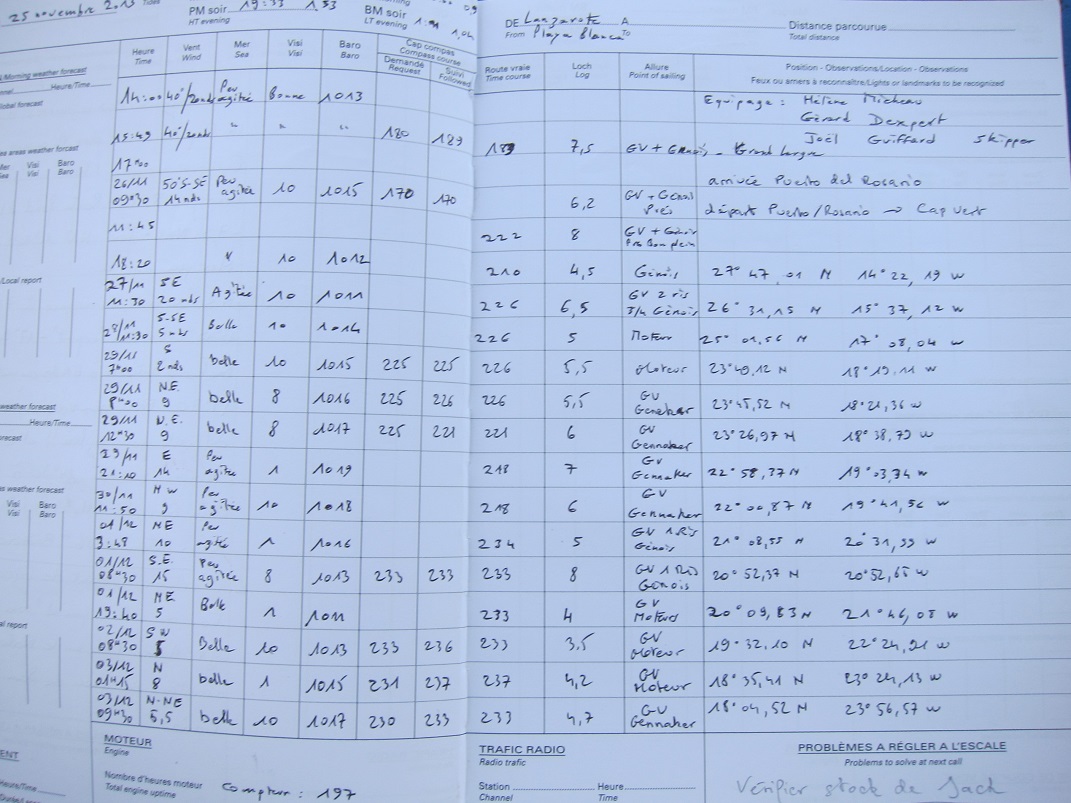 25 novembre
PM soir 19:33 1.53
HT evening
BM soir
LT evening
Morning weather forecast
Heure/Time
Global forecast
Heure Vent Mer Visi Baro Cap compas
Time Wind Sea Visi Baro Compass course
Demandé Suivi
Request Followed
14:00 40°/20nds Peu agitée Bonne 1013
15:49 40°/20nds " " " 180 189
17h00
26/11 09h30 50°S-SE 14nds Peu agitée 10 1015 170 170
11:45
18:20 " 10 1012
27/11 11:30 SE 20 nds Agitée 10 1011
28/11 11:30 S-SE 5 nds Belle 10 1014
29/11 7h00 S 2 nds belle 10 1015 225 225
29/11 8h00 N.E. 9 belle 8 1016 225 226
29/11 12h30 N.E. 9 belle 8 1017 225 221
29/11 21:10 E 14 Peu agitée 1 1019
30/11 11:50 NW 9 Peu agitée 10 1018
01/12 3:48 NE 10 Peu agité 1 1016
01/12 08h30 S.E. 15 Peu agitée 8 1013 233 233
01/12 19:40 NE 5 Belle 1 1011
02/12 08h30 SW 5 Belle 10 1013 233 236
03/12 01h15 N 8 belle 1 1015 231 237
03/12 09h30 N-NE 5,5 belle 10 1017 230 233
MOTEUR
Engine
Nombre d'heures moteur
Total engine uptime
Compteur : 197
DE Lanzarote A
From Playa Blanca To
Distance parcourue
Total distance
Route vraie Loch Allure Position - Observations/Location - Observations
Time course Log Point of sailing Feux ou amers à reconnaître/Lights or landmarks to be recognized
Equipage : Hélène Micheau
Gérard Dexpert
Joël Guiffard Skipper
189 7,5 GV + Génois - Grand largue
arrivée Puerto del Rosario
6,2 GV + Génois Près départ Puerto/Rosario → Cap vert
222 8 GV + Génois Près Bon plein
210 4,5 Génois 27° 47,01 N 14° 22,19 W
226 6,5 GV 2 ris 3/4 Génois 26° 31,15 N 15° 37,12 W
226 5 Moteur 25° 01,56 N 17° 08,04 W
226 5,5 Moteur 23°49,12 N 18°19,11 W
226 5,5 GV Genaker 23°45,52 N 18°21,36 W
221 6 GV Gennaker 23°26,97 N 18°38,79 W
218 7 GV Gennaker 22°58,37 N 19°03,74 W
218 6 GV Gennaker 22°00,87 N 19°41,56 W
234 5 GV 1Ris Génois 21°08,55 N 20°31,99 W
233 8 GV 1 Ris Génois 20°52,37 N 20°52,65 W
233 4 GV Moteurs 20°09,83 N 21°46,08 W
233 3,5 GV Moteur 19°32,10 N 22°24,91 W
237 4,2 GV Moteur 18°35,41 N 23°24,13 W
233 4,7 GV Gennaker 18°04,52 N 23°56,57 W
TRAFIC RADIO
Radio trafic
Station Heure
Channel Time
PROBLÈMES A RÉGLER A L'ESCALE
Problems to solve at next call
Vérifier stock de Jack